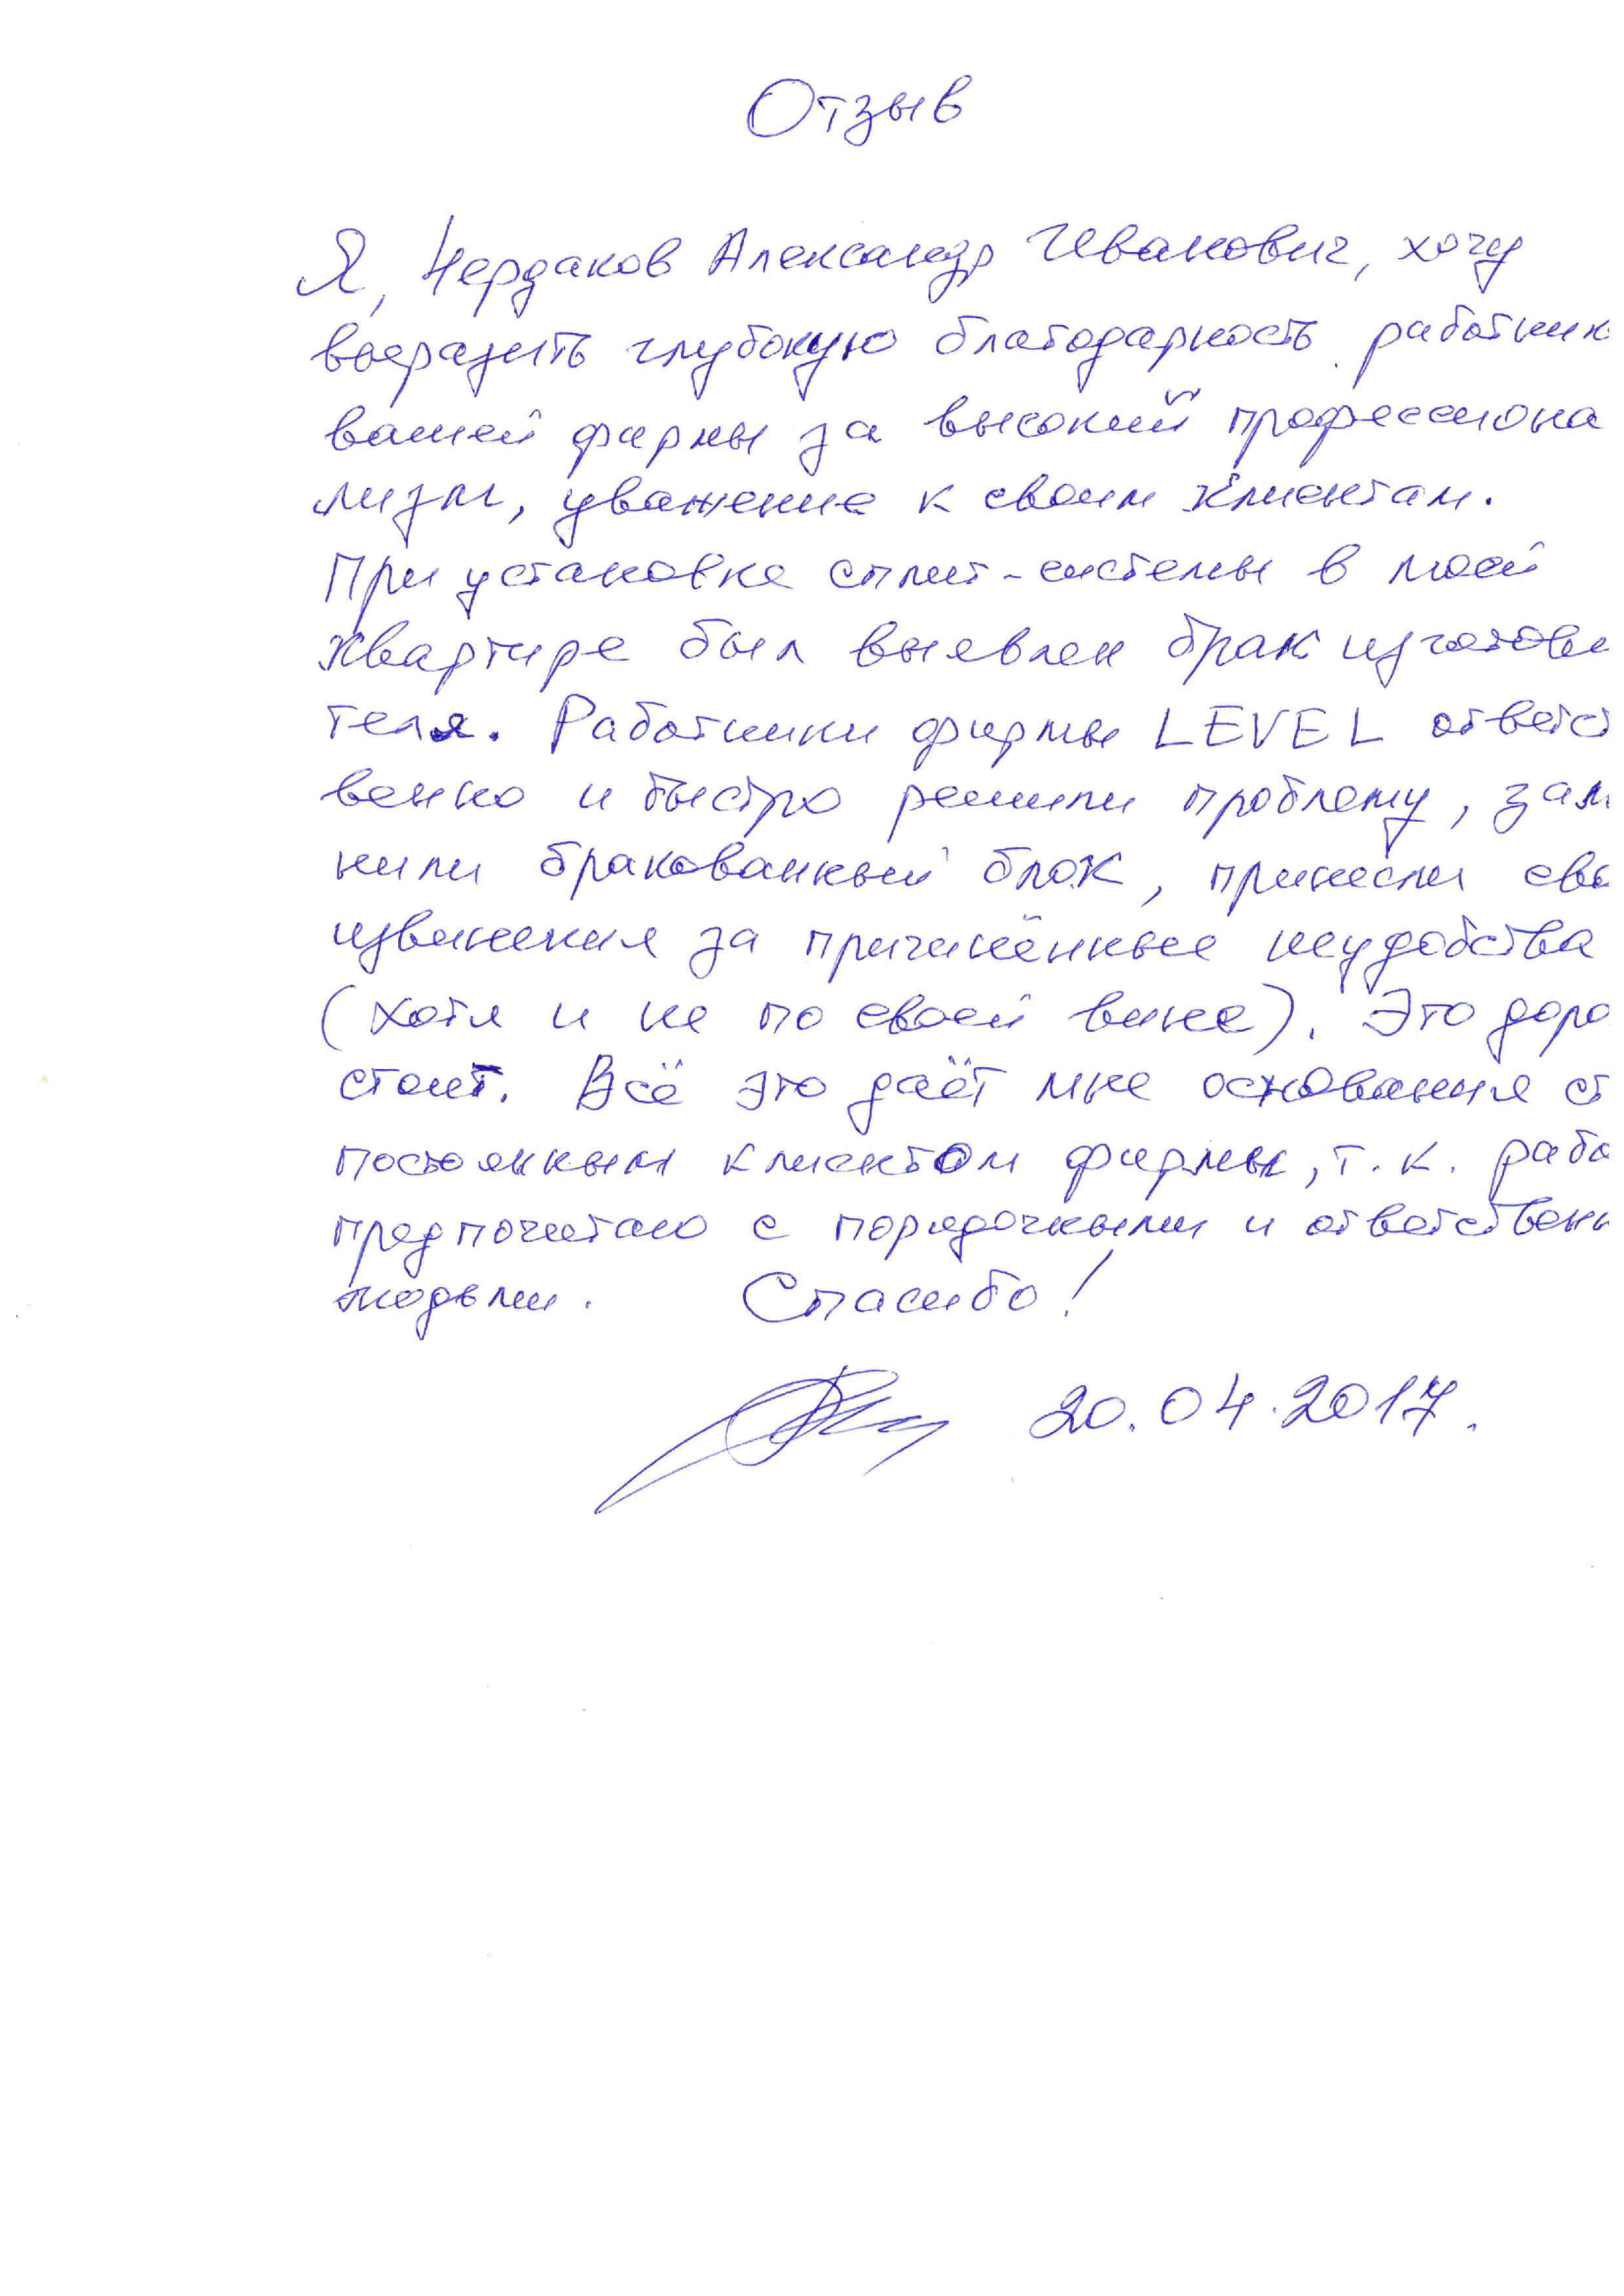 Отзыв
Я, Чердаков Александр Иванович, хочу
выразить глубокую благодарность работник
вашей фирмы за высокий профессиона
лизм, уважение к своим клиентам.
При установке сплит-системы в моей
квартире был выявлен брак изготови
теля. Работники фирмы LEVEL ответст
венно и быстро решили проблему, зам
нили бракованный блок, принесли сво
извинения за причинённые неудобства
(хотя и не по своей вине). Это доро
стоит. Всё это даёт мне основания ст
постоянным клиентом фирмы, т.к. рабо
предпочитаю с порядочными и ответственн
людьми. Спасибо!
20.04.2017.